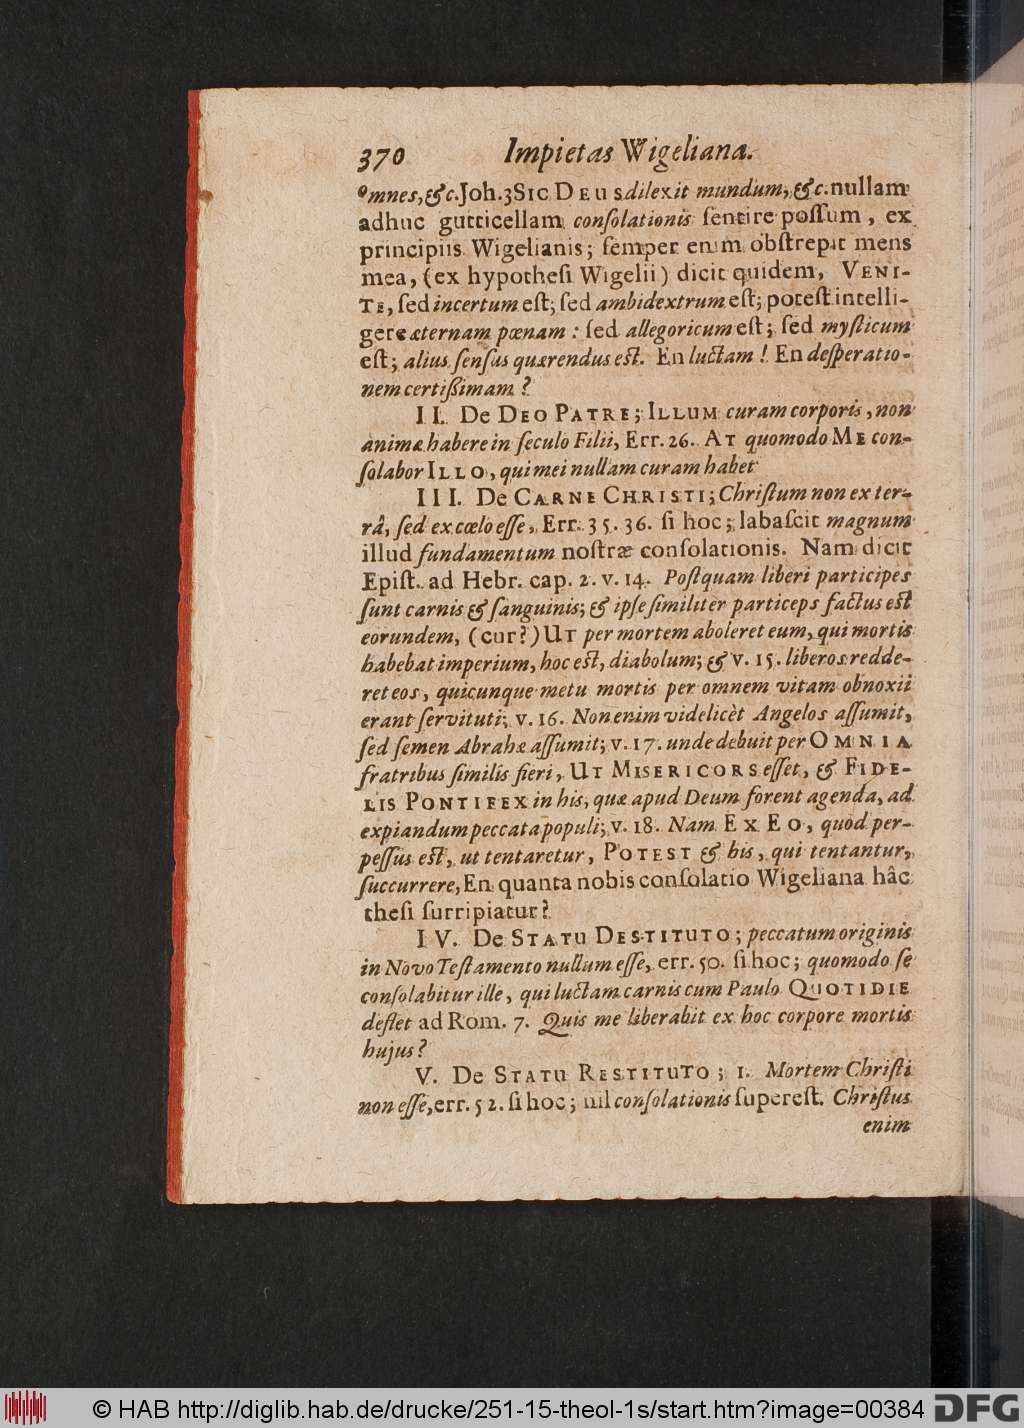 370 Impietas Wigeliana.
omnes, &c. Joh. 3 SIC DEUS dilexit mundum, &c. nullam
adhuc gutticellam consolationis sentire possum, ex
principiis Wigelianis; semper enim obstrepit mens
mea, (ex hypothesi Wigelii) dicit quidem, VENI-
TE, sed incertum est; sed ambidextrum est; potest intelli-
gere æternam pœnam: sed allegoricum est; sed mysticum
est; alius sensus quærendus est. En luctam! En desperatio-
nem certissimam?
II. De DEO PATRE; ILLUM curam corporis, non
animæ habere in seculo Filii, Err. 26. AT quomodo ME con-
solabor ILLO, qui mei nullam curam habet
III. De CARNE CHRISTI; Christum non ex ter-
râ, sed ex cœlo esse, Err. 35. 36. si hoc; labascit magnum
illud fundamentum nostræ consolationis. Nam dicit
Epist. ad Hebr. cap. 2. v. 14. Postquam liberi participes
sunt carnis & sanguinis; & ipse similiter particeps factus est
eorundem, (cur?) UT per mortem aboleret eum, qui mortis
habebat imperium, hoc est, diabolum; & v. 15. liberos redde-
ret eos, quicunque metu mortis per omnem vitam obnoxii
erant servituti; v. 16. Non enim videlicèt Angelos assumit,
sed semen Abrahæ assumit; v. 17. unde debuit per OMNIA
fratribus similis fieri, UT MISERICORS esset, & FIDE-
LIS PONTIFEX in his, quæ apud Deum forent agenda, ad
expiandum peccata populi; v. 18. Nam EX EO, quod per-
pessus est, ut tentaretur, POTEST & his, qui tentantur,
succurrere, En quanta nobis consolatio Wigeliana hâc
thesi surripiatur?
IV. De STATU DESTITUTO; peccatum originis
in Novo Testamento nullum esse, err. 50. si hoc; quomodo se
consolabitur ille, qui luctam carnis cum Paulo QUOTIDIE
deflet ad Rom. 7. Quis me liberabit ex hoc corpore mortis
hujus?
V. De STATU RESTITUTO; 1. Mortem Christi
non esse, err. 52. si hoc; nil consolationis superest. Christus
enim
© HAB http://diglib.hab.de/drucke/251-15-theol-1s/start.htm?image=00384
DFG